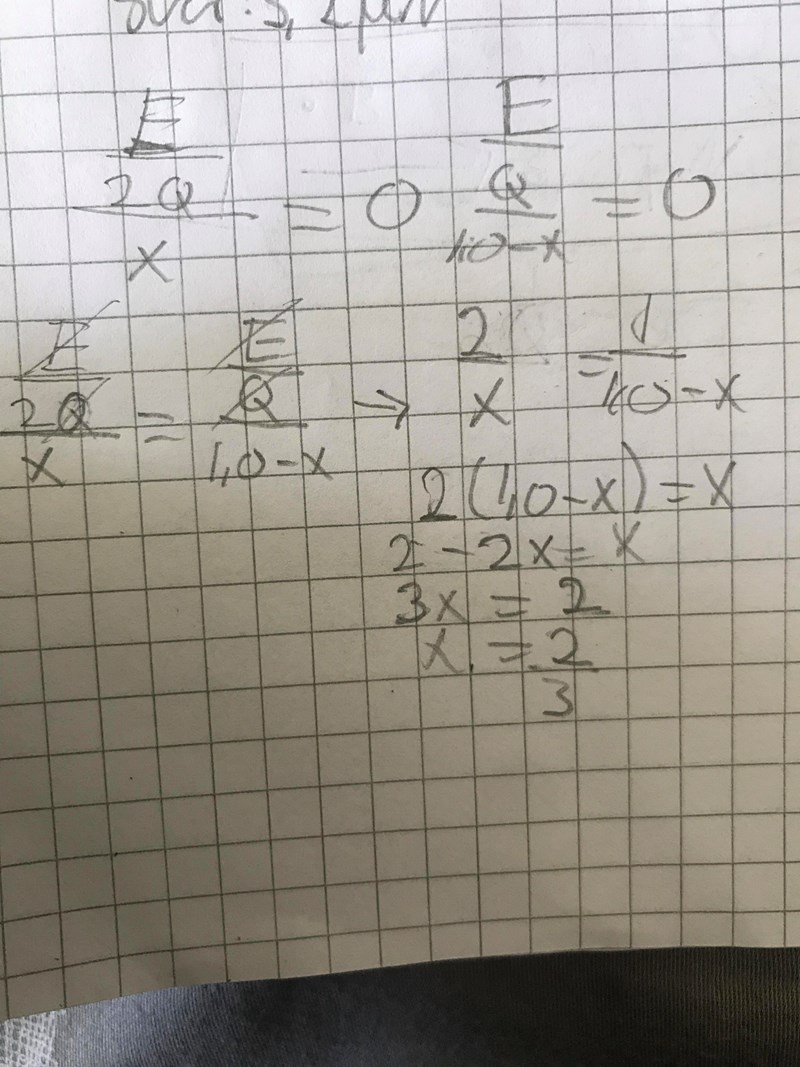 E/2Q/x = 0 E/Q/1,0-x = 0
E/2Q/x = E/Q/1,0-x → 2/x = 1/1,0-x
2(1,0-x) = x
2 - 2x = x
3x = 2
x = 2/3